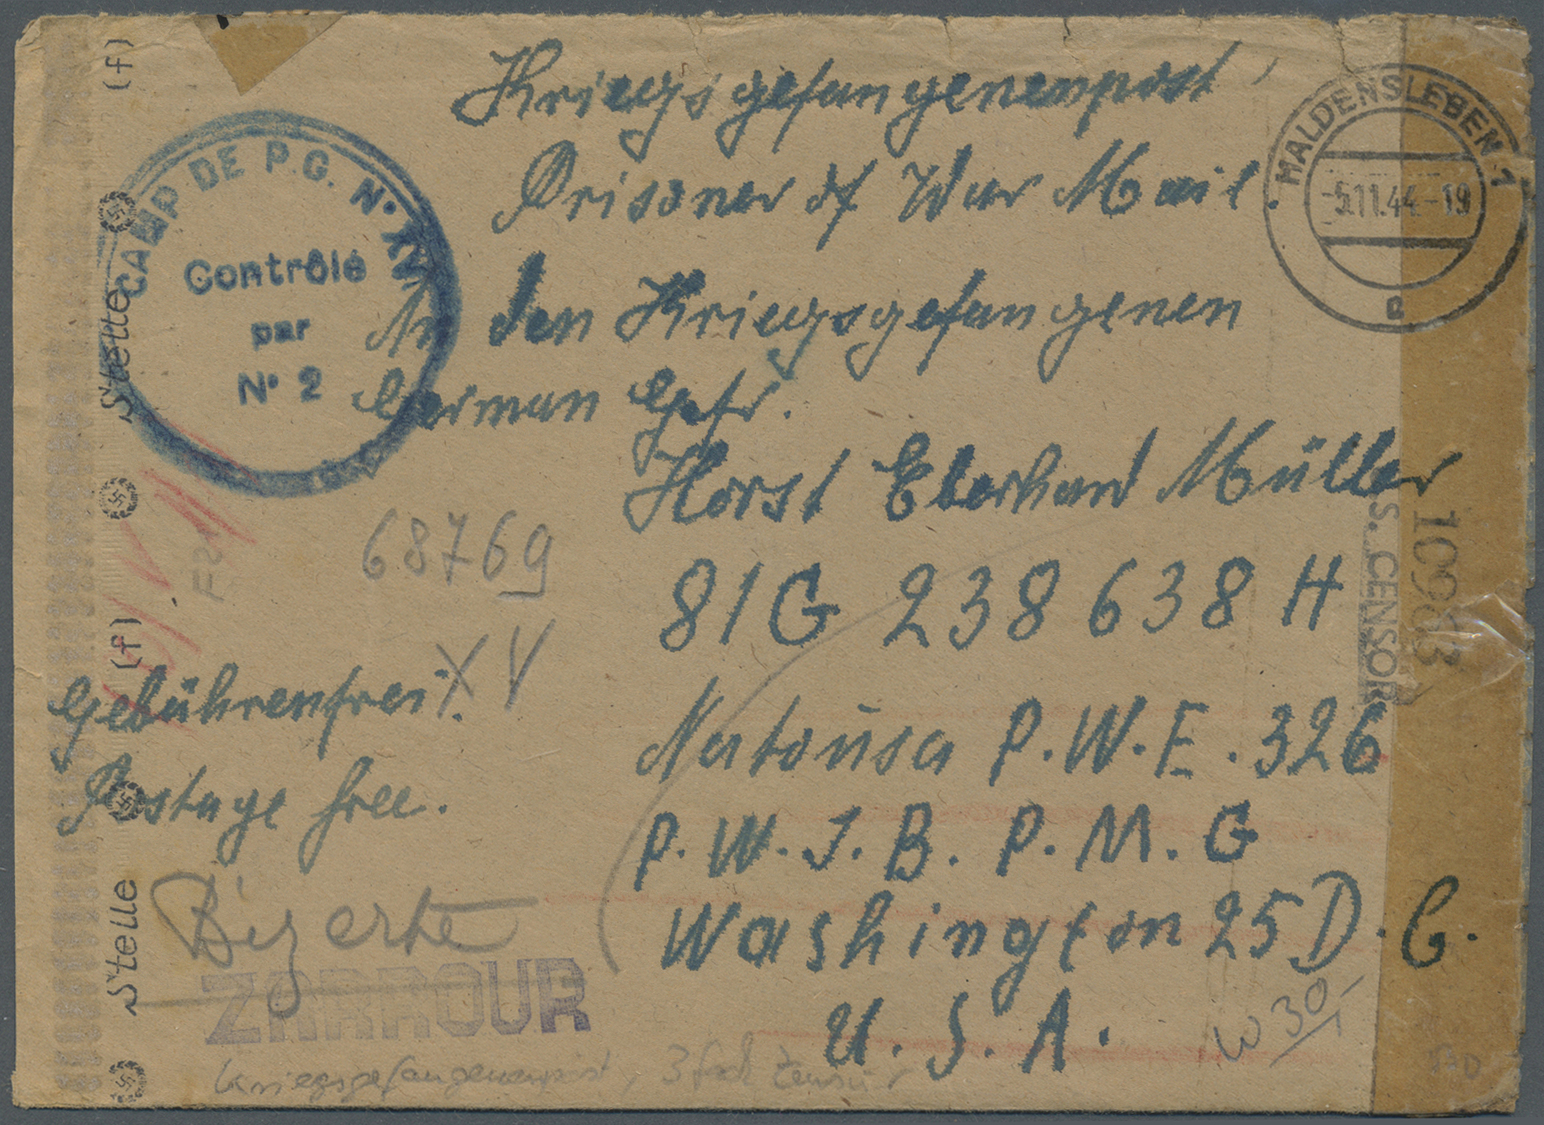 Kriegsgefangenenpost
Prisoner of War Mail.
An den Kriegsgefangenen
German Gefr.
Horst Eberhard Müller
81G 238638 H
Natousa P.W.E. 326
P.W.I.B. P.M.G
Washington 25 D.C.
U.S.A.
Gebührenfrei.
Postage free.
CAMP DE P.G. N°
Contrôlé
par
N° 2
HALDENSLEBEN 1
-5.11.44-19
68769
XV
Bizerte
ZARROUR
Kriegsgefangenenpost, 3fach Zensur
W 30,-
S. CENSOR
(f)
Stelle
(f)
Stelle